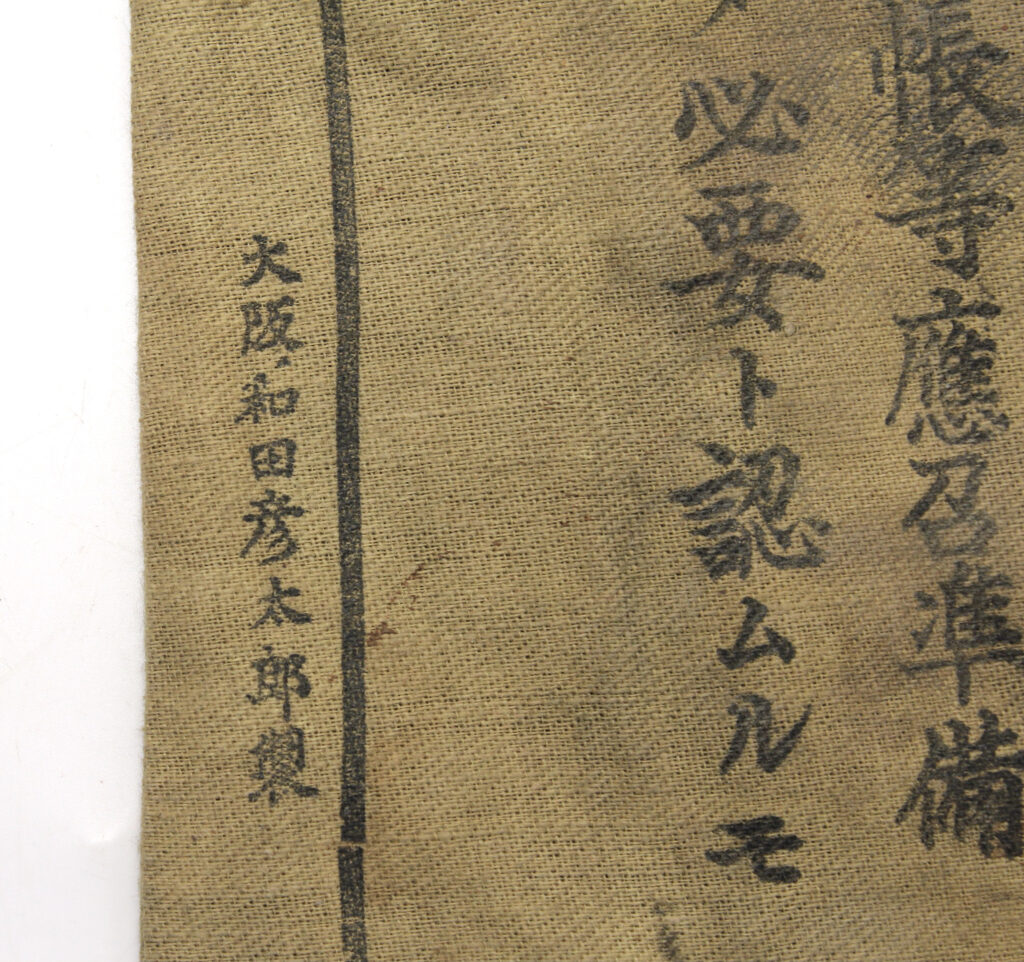 帳等應召準備
必要ト認ムルモ
大阪、和田彦太郎製